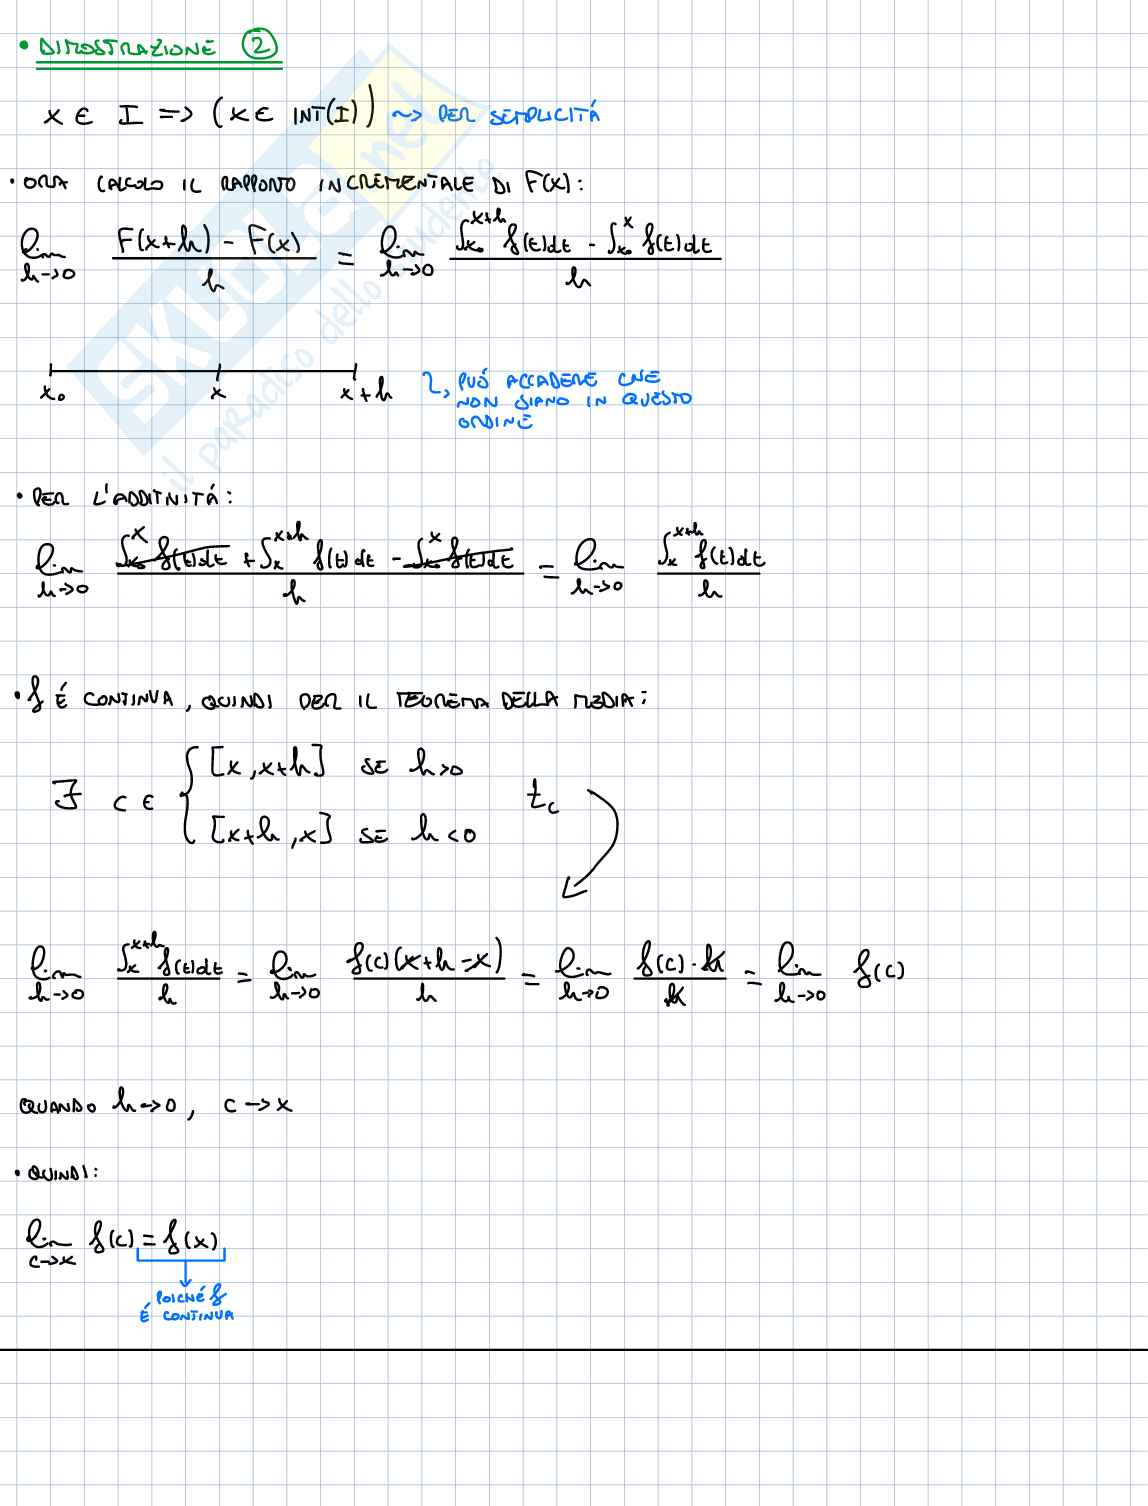 • DIMOSTRAZIONE ②
x ∈ I => (x ∈ INT(I)) ~> PER SEMPLICITÁ
• ORA CALCOLO IL RAPPORTO INCREMENTALE DI F(x):
lim h->0 (F(x+h) - F(x))/h = lim h->0 (∫_{x₀}^{x+h} f(t)dt - ∫_{x₀}^{x} f(t)dt)/h
x₀ x x+h
PUÓ ACCADERE CHE
NON SIANO IN QUESTO
ORDINE
• PER L'ADDITIVITÁ:
lim h->0 (∫_{x₀}^{x} f(t)dt + ∫_{x}^{x+h} f(t)dt - ∫_{x₀}^{x} f(t)dt)/h = lim h->0 (∫_{x}^{x+h} f(t)dt)/h
• f É CONTINUA, QUINDI PER IL TEOREMA DELLA MEDIA:
∃ c ∈ { [x, x+h] SE h>0
[x+h, x] SE h<0
t_c
lim h->0 (∫_{x}^{x+h} f(t)dt)/h = lim h->0 (f(c)(x+h-x))/h = lim h->0 (f(c)·h)/h = lim h->0 f(c)
QUANDO h->0, c->x
• QUINDI:
lim c->x f(c) = f(x)
POICHÉ f
É CONTINUA
SKUOLA.net
il paradiso dello studente